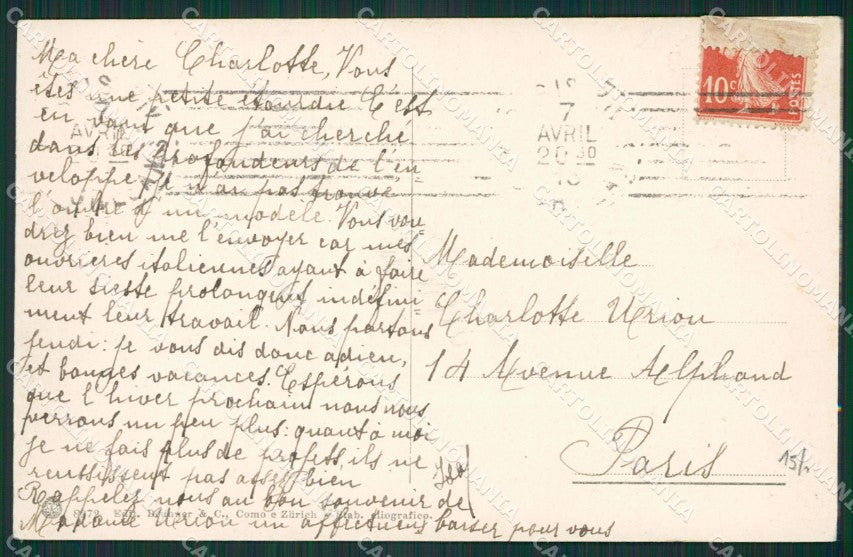 Ma chère Charlotte, Vous
êtes une petite étourdie C'est
en vain que j'ai cherché
dans les profondeurs de l'en-
veloppe je n'ai pas trouvé
l'ombre d'un modèle. Vous vou-
drez bien me l'envoyer car mes
ouvrières italiennes ayant à faire
leur sieste prolongent indéfini-
ment leur travail. Nous partons
jeudi: je vous dis donc adieu,
et bonnes vacances. Espérons
que l'hiver prochain nous nous
verrons un peu plus: quant à moi
je ne fais plus de projets, ils ne
réussissent pas assez bien
Rappelez nous au bon souvenir de
Madame Urion un affectueux baiser pour vous
Mademoiselle
Charlotte Urion
14 Avenue Alphand
Paris
10c
POSTES
7
AVRIL
20 30
AVRIL
15/
8972 Edit. Brunner & C., Como e Zürich - Stab. eliografico.
CARTOLINOMANIA